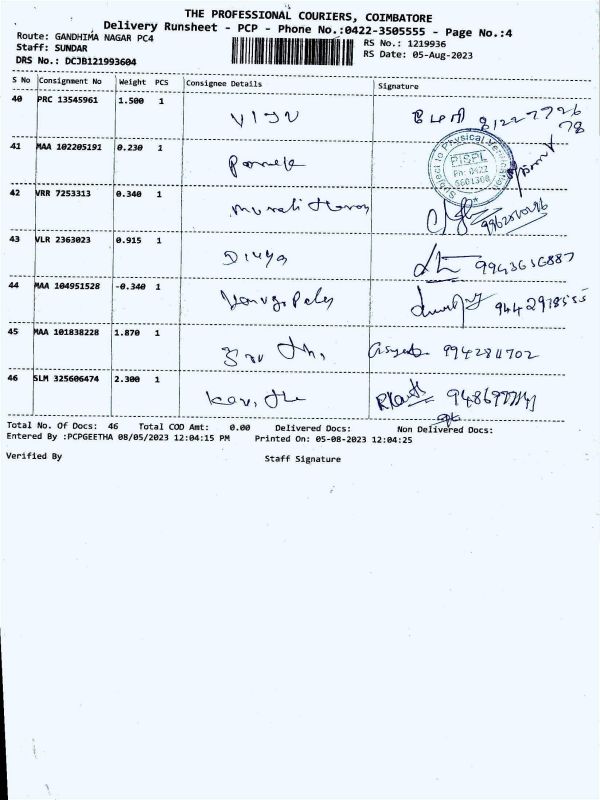 THE PROFESSIONAL COURIERS, COIMBATORE
Delivery Runsheet - PCP - Phone No.:0422-3505555 - Page No.:4
Route: GANDHIMA NAGAR PC4
RS No.: 1219936
Staff: SUNDAR
RS Date: 05-Aug-2023
DRS No.: DCJB121993604
S No Consignment No Weight PCS Consignee Details Signature
40 PRC 13545961 1.500 1 VIJU 81227726
78
41 MAA 102205191 0.230 1
Subject to Physical Verification
PISPL
Ph: 0422
42 VRR 7253313 0.340 1
43 VLR 2363023 0.915 1 Divya 9943636887
44 MAA 104951528 -0.340 1 9442918555
45 MAA 101838228 1.870 1 9942811702
46 SLM 325606474 2.300 1
Total No. Of Docs: 46 Total COD Amt: 0.00 Delivered Docs: Non Delivered Docs:
Entered By :PCPGEETHA 08/05/2023 12:04:15 PM Printed On: 05-08-2023 12:04:25
Verified By Staff Signature